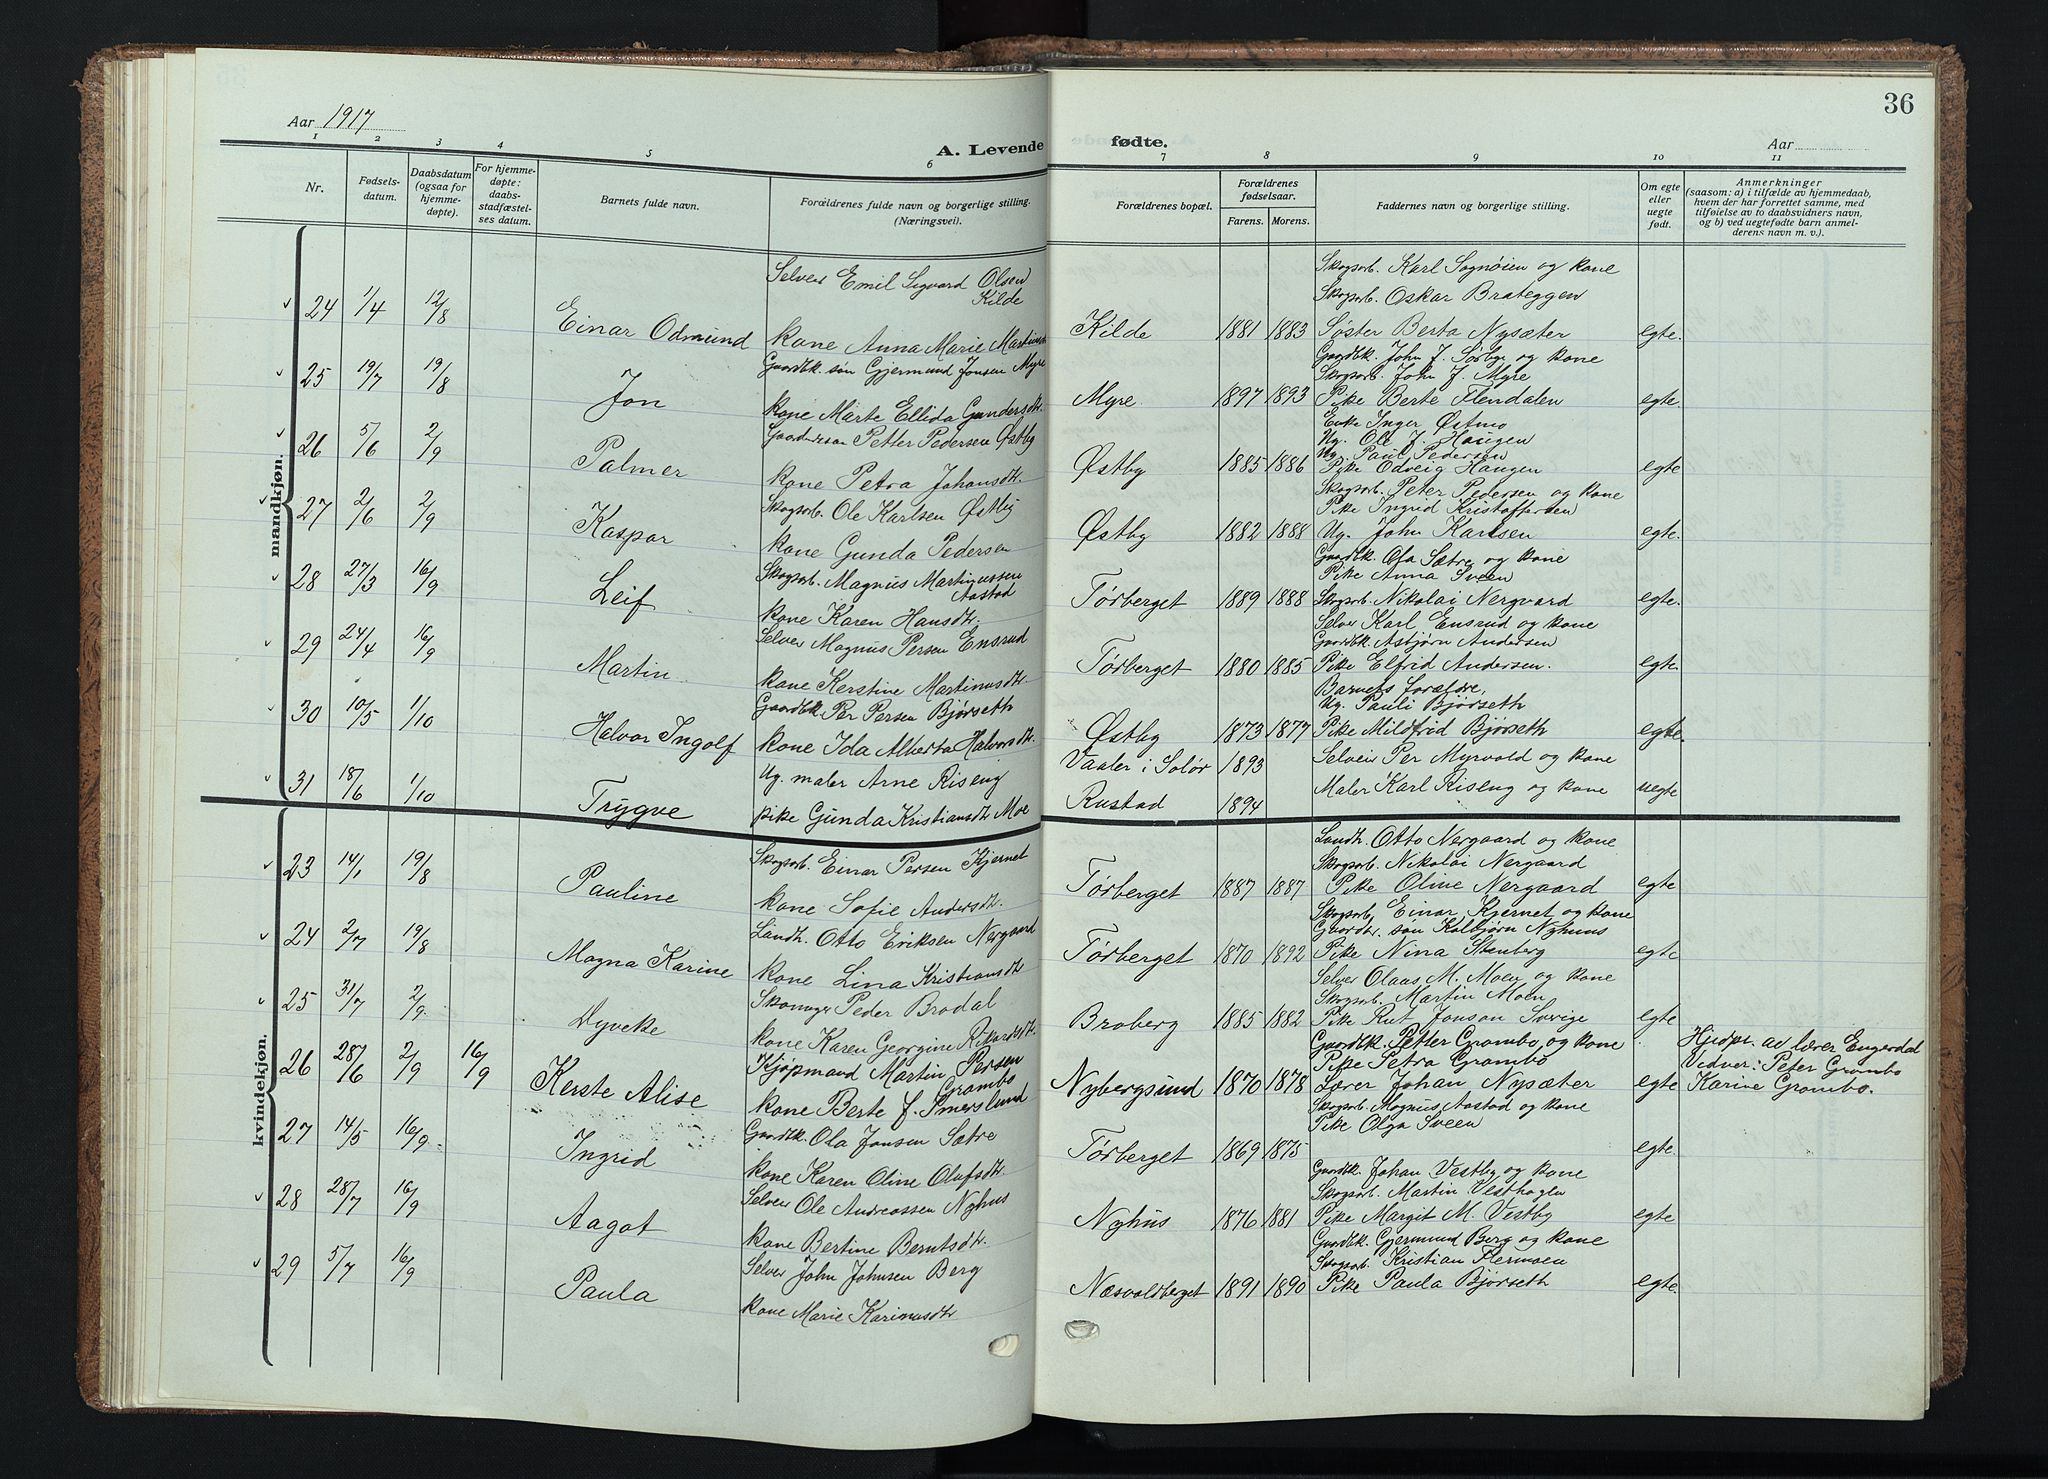 36
Aar 1917
A. Levende fødte.
Aar
1 2 3 4 5 6 7 8 9 10 11
Nr. Fødselsdatum. Daabsdatum (ogsaa for hjemmedøpte). For hjemmedøpte: daabsstadfæstelses datum. Barnets fulde navn. Forældrenes fulde navn og borgerlige stilling. (Næringsvei). Forældrenes bopæl. Forældrenes fødselsaar. Farens. Morens. Faddernes navn og borgerlige stilling. Om egte eller uegte født. Anmerkninger (saasom: a) i tilfælde av hjemmedaab, hvem der har forrettet samme, med tilføielse av to daabsvidners navn, og b) ved uegtefødte barn anmelderens navn m. v.).
mandkjøn.
24 1/4 12/8 Einar Odmund Selveier Emil Sigvard Olsen Kilde
kone Anna Marie Martinusdt. Kilde 1881 1883 egte.
Skogsarb. Karl Sognøien og kone
Skogsarb. Oskar Brateggen
Søster Berta Nysæter
25 19/7 19/8 Jon Gaardbk. søn Gjermund Jonsen Myre
kone Marte Ellida Gundersdt. Myre 1897 1893 egte.
Gaardbk. John J. Sørby og kone
Skogsarb. John J. Myre
Pike Berte Flendalen
26 5/6 2/9 Palmer Petter Pedersen Østby
kone Petra Johansdt. Østby 1885 1886 egte
Enke Inger Østmo
Ug. Ole J. Haugen
Ug. Paul Pedersen
Pike Odveig Haugen
27 2/6 2/9 Kaspar Skogsarb. Ole Karlsen Østby
kone Gunda Pedersen Østby 1882 1888 egte.
Skogsarb. Peter Pedersen og kone
Pike Ingrid Kristoffersen
Ug. John Karlsen
28 27/3 16/9 Leif Skogsarb. Magnus Martinussen Aastad
kone Karen Hansdt. Tørberget 1889 1888 egte.
Gaardbk. Ola Sætre og kone
Pike Anna Sveen
Skogsarb. Nikolai Nergaard
29 24/4 16/9 Martin Selveier Magnus Persen Ensrud
kone Kerstine Martinusdt. Tørberget 1880 1885 egte.
Selveier Karl Ensrud og kone
Gaardbk. Asbjørn Andersen
Pike Elfrid Andersen.
30 10/5 1/10 Halvor Ingolf Gaardbk. Per Persen Bjørseth
kone Ida Alberta Halvorsdt. Østby 1873 1877 egte.
Barnets forældre,
Ug. Pauli Bjørseth
Pike Mildfrid Bjørseth
31 18/6 1/10 Trygve Ug. maler Arne Riseng Vaaler i Solør 1893
pike Gunda Kristiansdt. Moe Rustad 1894 uegte
Selveier Per Myrvold og kone
Maler Karl Riseng og kone
kvindekjøn.
23 14/1 19/8 Pauline Skogsarb. Einar Persen Kjernet
kone Sofie Andersdt. Tørberget 1887 1887 egte
Landh. Otto Nergaard og kone
Skogsarb. Nikolai Nergaard
Pike Oline Nergaard
24 2/7 19/8 Magna Karine Landh. Otto Eriksen Nergaard
kone Lina Kristiansdt. Tørberget 1870 1892 egte
Skogsarb. Einar Kjernet og kone
Gaardbr. søn Kolbjørn Nyhuus
Pike Nina Stenberg
25 31/7 2/9 Dyveke Skomager Peder Brodal
kone Karen Georgine Rikardsdt. Broberg 1885 1882 egte
Selveier Olaus M. Moen og kone
Skogsarb. Martin Moen
Pike Rut Jonson Sverige
26 28/6 2/9 16/9 Kerste Alise Kjøpmand Martin Persen Grambo
kone Berte f. Smerslund Nybergsund 1870 1878 egte
Gaardbk. Petter Grambo og kone
Pike Petra Grambo
Lærer Johan Nysæter
Hjdpt. av lærer Engerdal
Vidner: Peter Grambo
Karine Grambo.
27 14/5 16/9 Ingrid Gaardbk. Ola Jonsen Sætre
kone Karen Oline Olufsdt. Tørberget 1869 1875 egte
Skogsarb. Magnus Aastad og kone
Pike Olga Sveen
28 28/7 16/9 Aagot Selveier Ole Andreassen Nyhus
kone Bertine Berntsdt. Nyhus 1876 1881 egte
Gaardbk. Johan Vestby og kone
Skogsarb. Martin Vesthagen
Pike Margit M. Vestby
29 5/7 16/9 Paula Selveier John Johnsen Berg
kone Marie Karinusdt. Næsvoldberget 1891 1890 egte.
Gaardbk. Gjermund Berg og kone
Skogsarb. Kristian Flermoen
Pike Paula Bjørseth